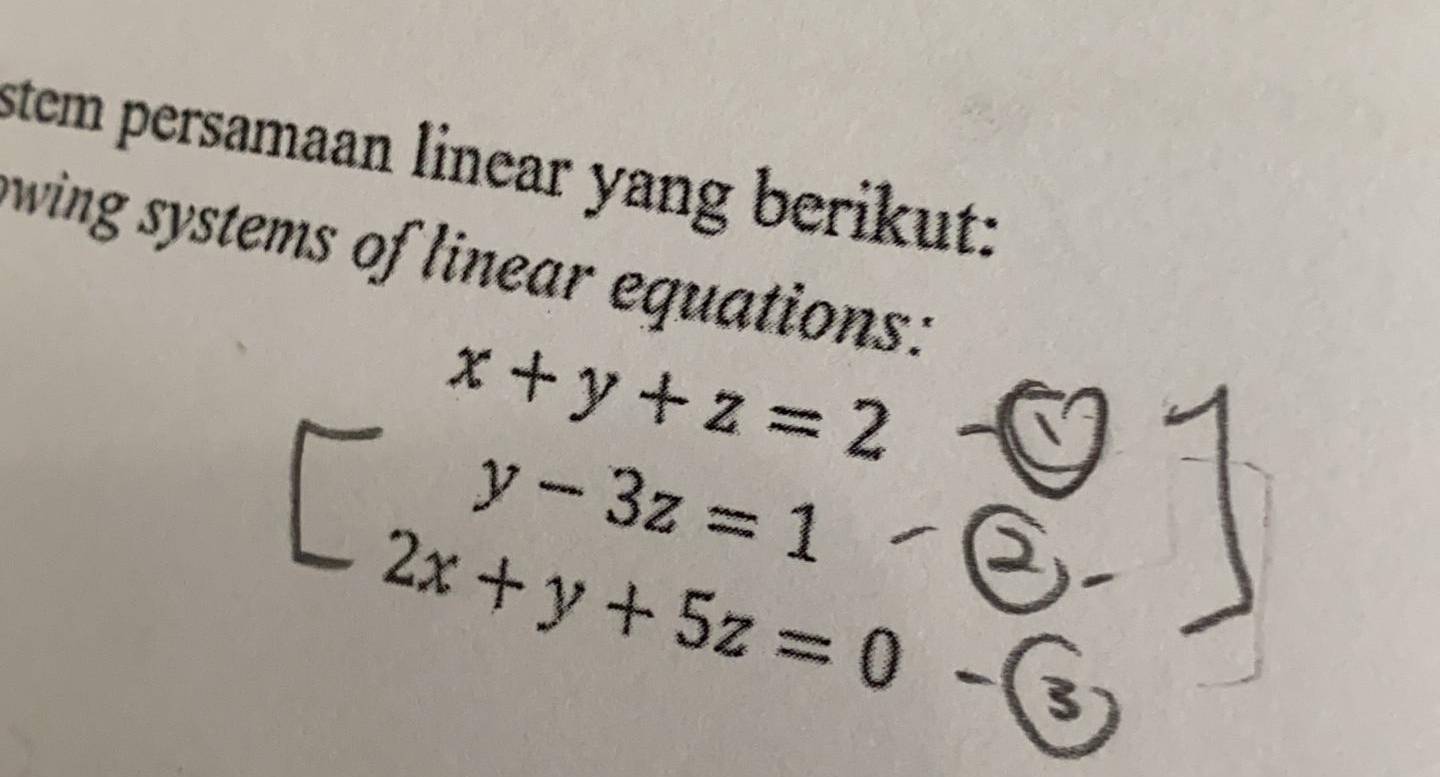 stem persamaan linear yang berikut:
owing systems of linear equations:
x + y + z = 2 - ①
y - 3z = 1 - ② -
2x + y + 5z = 0 - ③